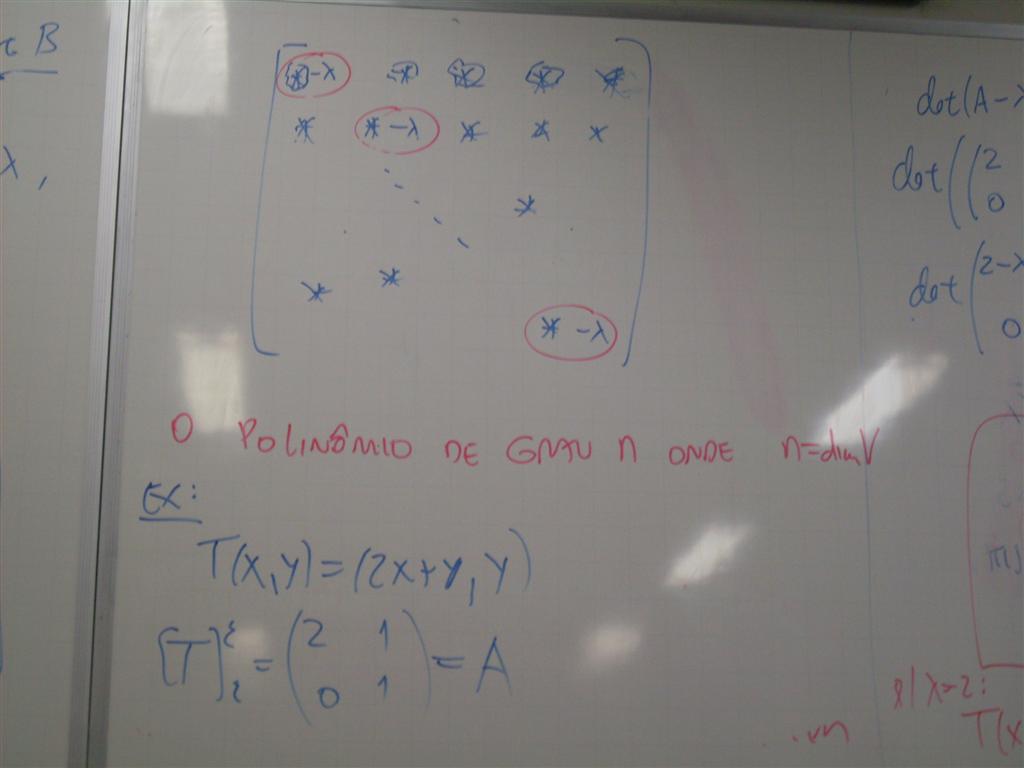 B
λ,
*-λ * * * *
* *-λ * * *
*
* *
*-λ
O POLINÔMIO DE GRAU n ONDE n=dim V
EX:
T(x,y)=(2x+y, y)
[T] = (2 1
0 1) = A
det(A-λ
det((2
0
det(2-λ
0
p/ λ=2:
T(x